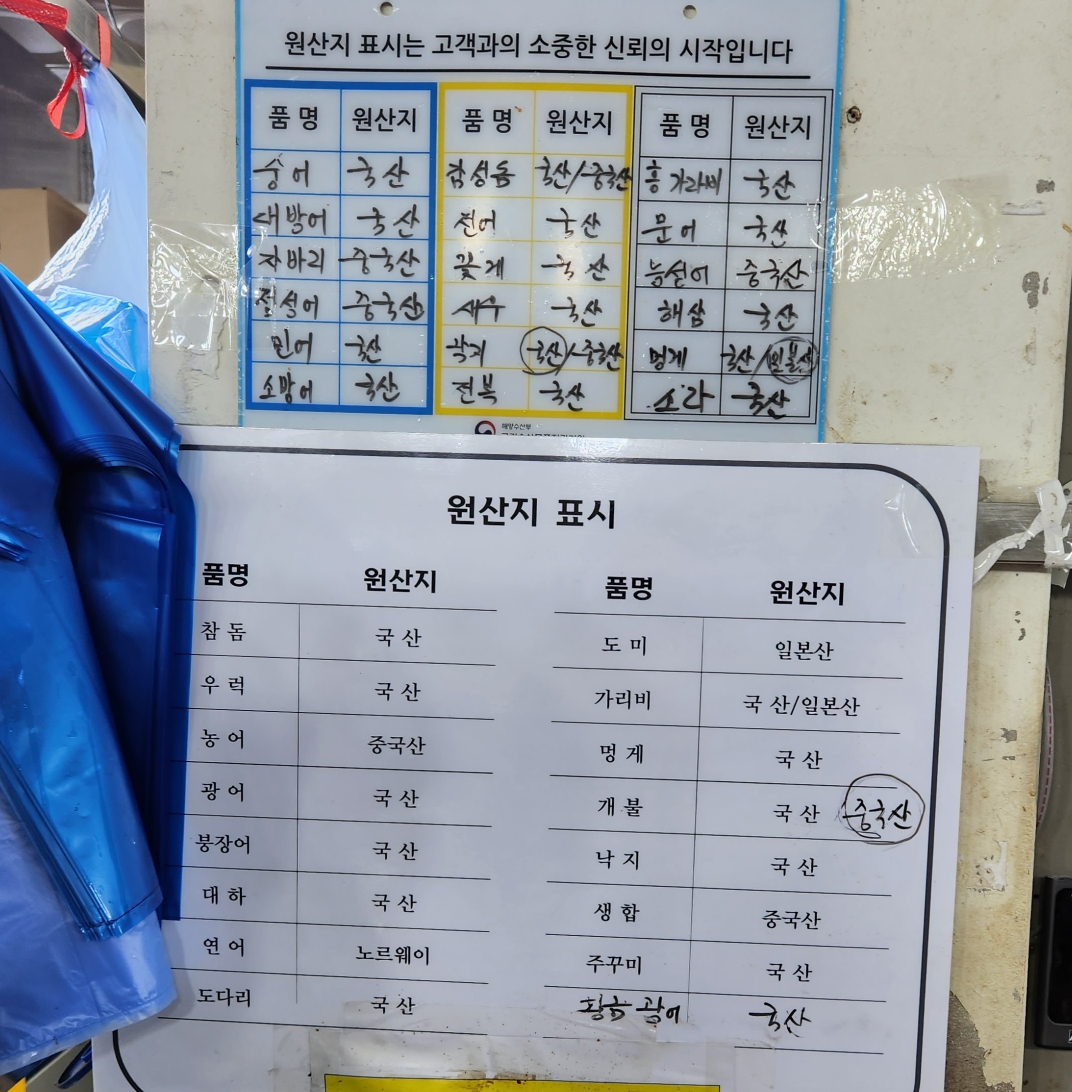 원산지 표시는 고객과의 소중한 신뢰의 시작입니다
품명 원산지 품명 원산지 품명 원산지
숭어 국산 감성돔 국산/중국산 홍가리비 국산
새방어 국산 전어 국산 문어 국산
자바리 중국산 꽃게 국산 능성어 중국산
점성어 중국산 새우 국산 해삼 국산
민어 국산 낙지 국산/중국산 멍게 국산/일본산
소방어 국산 전복 국산 소라 국산
해양수산부
원산지 표시
품명 원산지 품명 원산지
참돔 국산 도미 일본산
우럭 국산 가리비 국산/일본산
농어 중국산 멍게 국산
광어 국산 개불 국산 중국산
붕장어 국산 낙지 국산
대하 국산 생합 중국산
연어 노르웨이 주꾸미 국산
도다리 국산 황금광어 국산